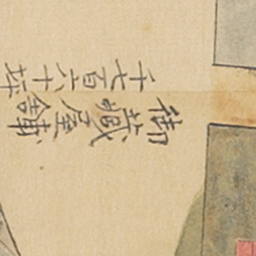 御藏屋舗
千七百六十坪